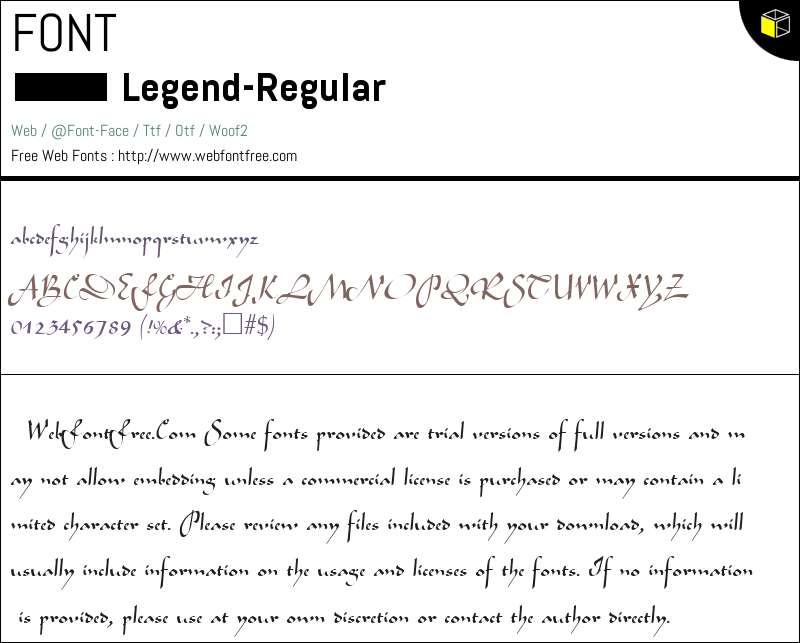 FONT
Legend-Regular
Web / @Font-Face / Ttf / Otf / Woof2
Free Web Fonts : http://www.webfontfree.com
abcdefghijklmnopqrstuvwxyz
ABCDEFGHIJKLMNOPQRSTUVWXYZ
0123456789 (!%&*.,?:;□#$)
WebfontFree.Com Some fonts provided are trial versions of full versions and m
ay not allow embedding unless a commercial license is purchased or may contain a li
mited character set. Please review any files included with your download, which will
usually include information on the usage and licenses of the fonts. If no information
is provided, please use at your own discretion or contact the author directly.